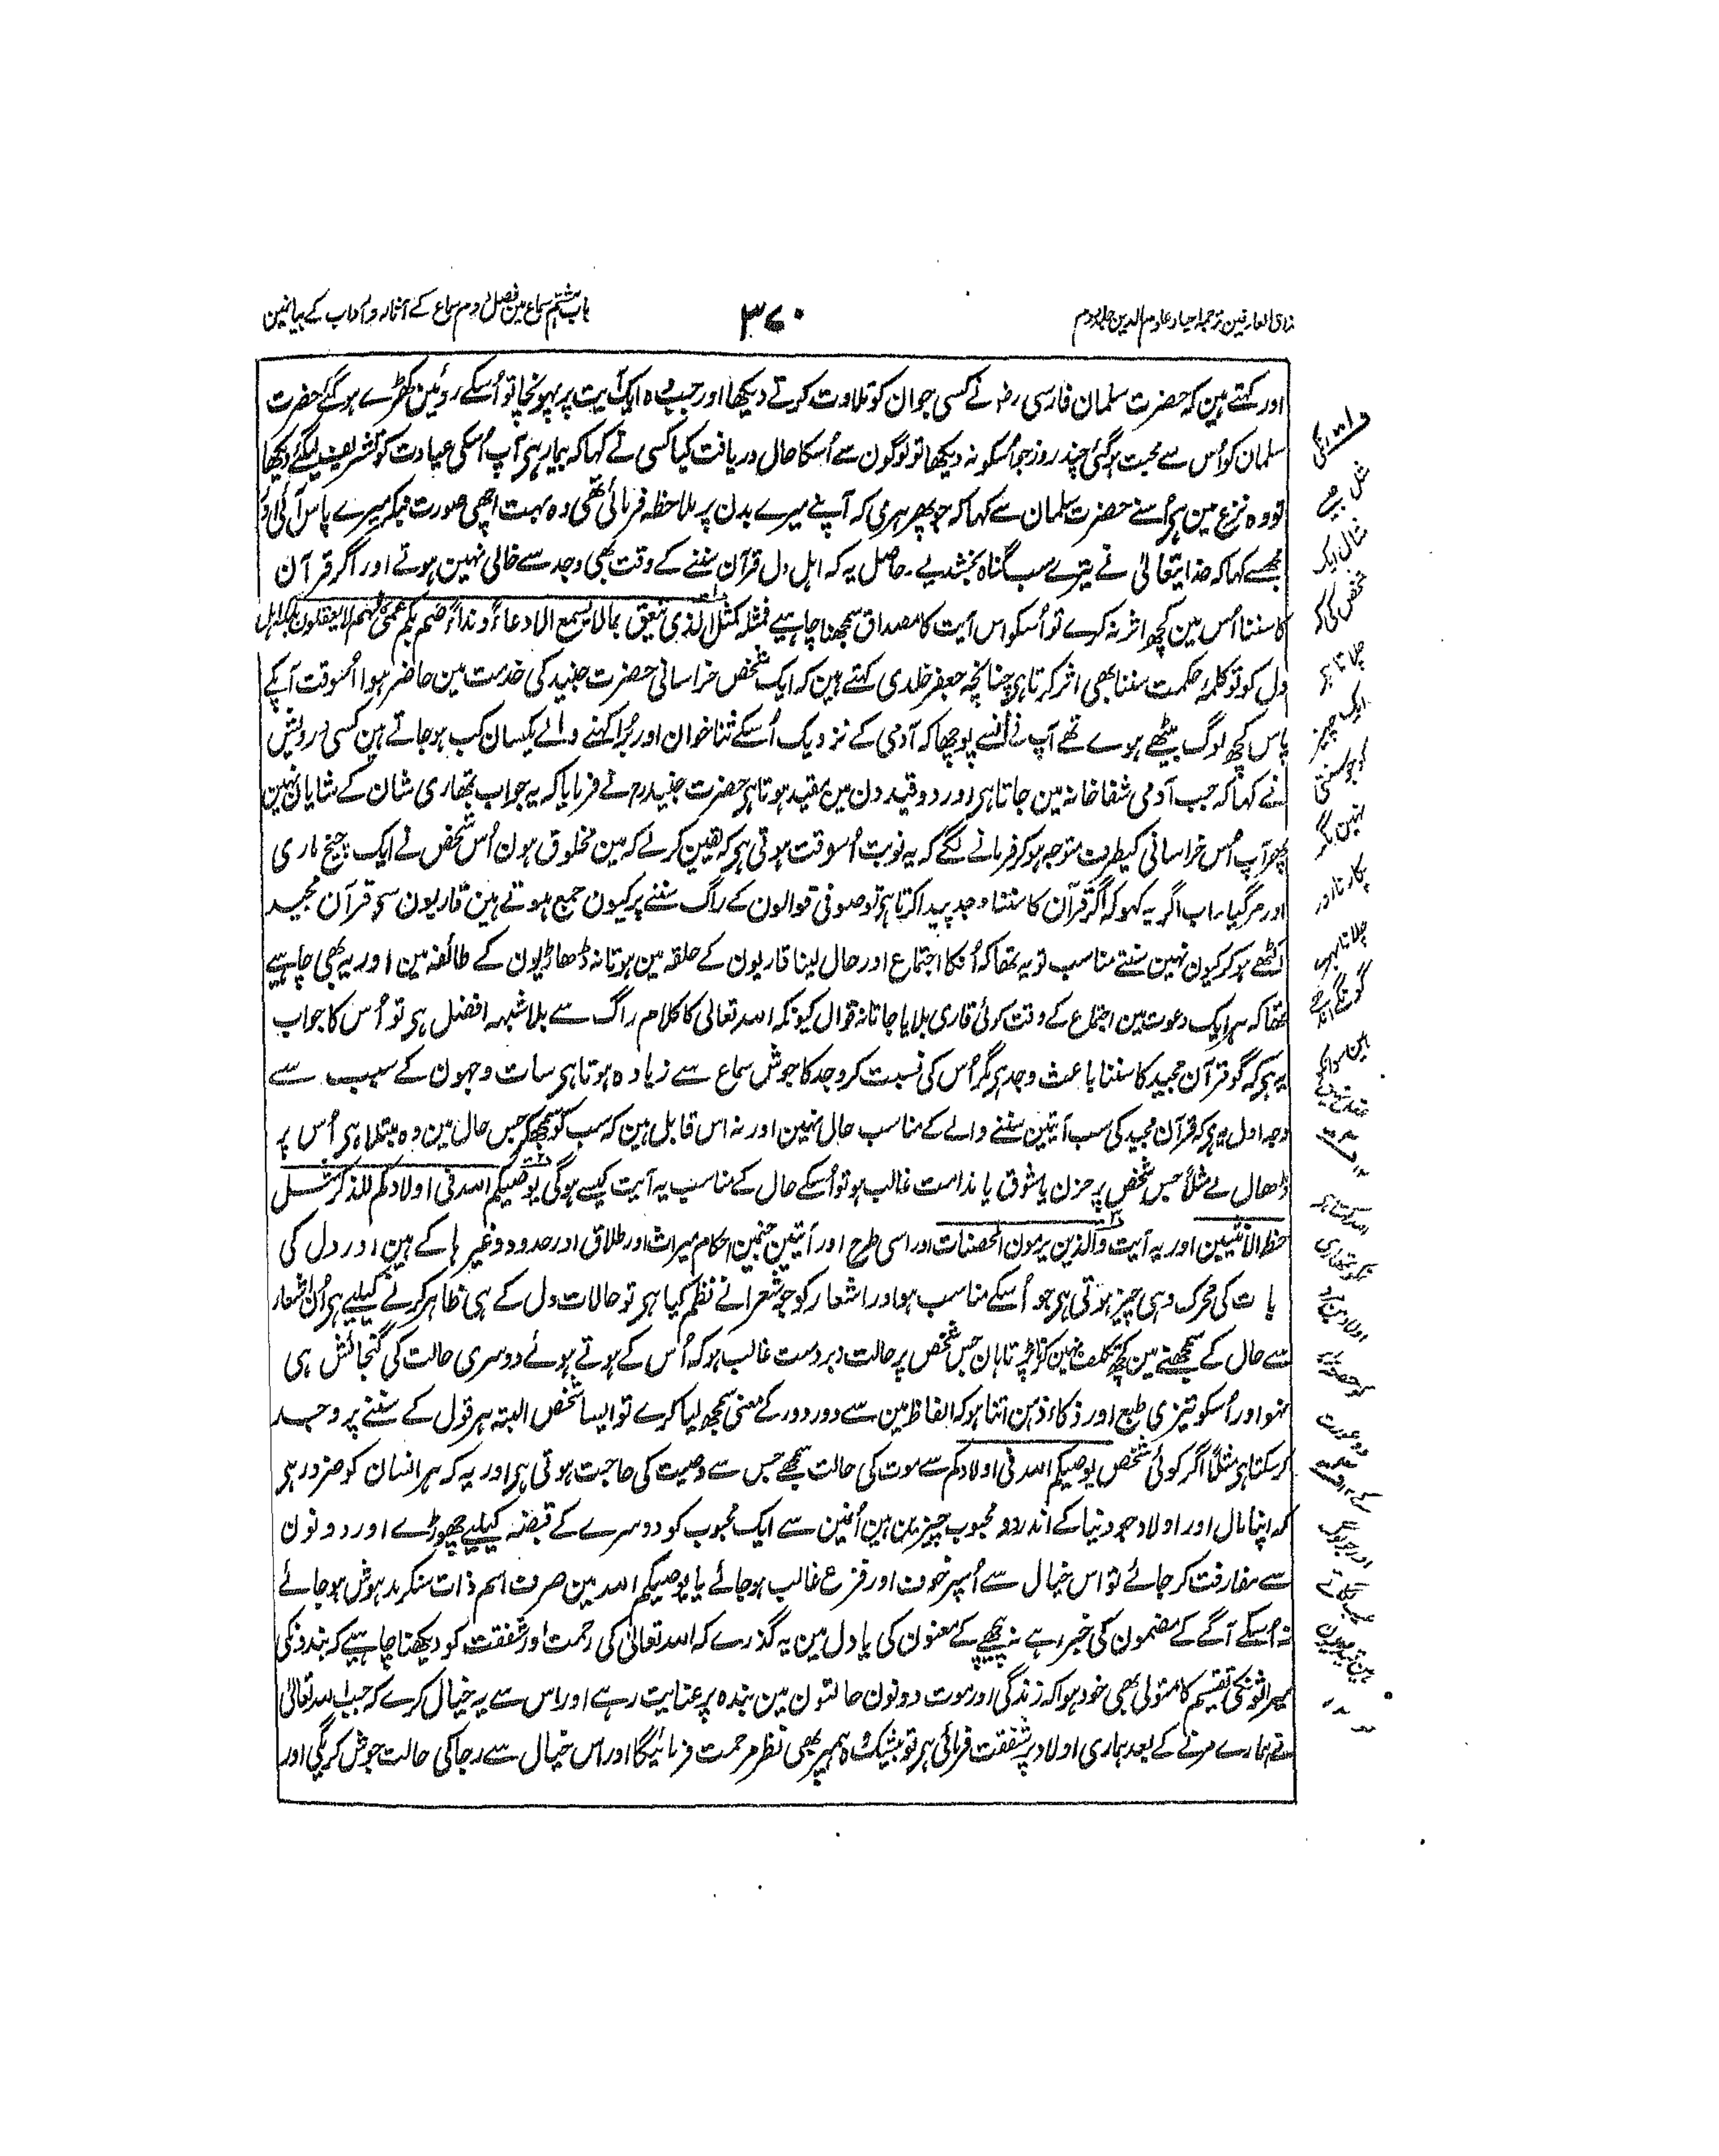 مذاق العارفین ترجمہ احیاء علوم الدین جلد دوم
۳۷۰
باب ہشتم سماع مین فصل دوم سماع کے آثار و آداب کے بیانمین
اور کہتے ہین کہ حضرت سلمان فارسی رضؓ نے کسی جوان کو تلاوت کرتے دیکھا اور جب وہ ایک آیت پر پہونچا تو اُسکے روئین کھڑے ہو گئے حضرت
سلمان کو اُس سے محبت ہو گئی چند روز جو اُسکو نہ دیکھا تو لوگون سے اُسکا حال دریافت کیا کسی نے کہا کہ بیمار ہی آپ اُسکی عیادت کو تشریف لیگئے دیکھا
تو وہ نزع مین ہی اُسنے حضرت سلمان سے کہا کہ جو پھرہری کہ آپنے میرے بدن پر ملاحظہ فرمائی تھی وہ بہت اچھی صورت بنکر میرے پاس آئی اور
مجھسے کہا کہ خدایتعالیٰ نے تیرے سب گناہ بخشدیے ۔ حاصل یہ کہ اہل دل قرآن سننے کے وقت بھی وجد سے خالی نہین ہوتے اور اگر قرآن
کا سننا اُس مین کچھ اثر نہ کرے تو اُسکو اس آیت کا مصداق سمجھنا چاہیے فمثلہ کمثل الذی ینعق بمالا یسمع الا دعاءً و نداءً صم بکم عمی فہم لا یعقلون بلکہ اہل
دل کو تو کلمۂ حکمت سننا بھی اثر کرتا ہی چنانچہ جعفر خلدی کہتے ہین کہ ایک شخص خراسانی حضرت جنید کی خدمت مین حاضر ہوا اُسوقت آپکے
پاس کچھ لوگ بیٹھے ہوے تھے آپ نے اُنسے پوچھا کہ آدمی کے نزدیک اُسکے ثنا خوان اور بُرا کہنے والے یکسان کب ہوجاتے ہین کسی درویش
نے کہا کہ جب آدمی شفا خانہ مین جاتا ہی اور دو قیدون مین مقید ہوتا ہی حضرت جنید رح نے فرمایا کہ یہ جواب تمھاری شان کے شایان نہین
پھر آپ اُس خراسانی کیطرف متوجہ ہوکر فرمانے لگے کہ یہ نوبت اُسوقت ہوتی ہی کہ یقین کرلے کہ مین مخلوق ہون اُس شخص نے ایک چیخ ماری
اور مرگیا ۔ اب اگر یہ کہو کہ اگر قرآن کا سننا وجد پیدا کرتا ہی تو صوفی قوالون کے راگ سننے پر کیون جمع ہوتے ہین قاریون سے قرآن مجید
اکٹھے ہوکر کیون نہین سنتے مناسب تو یہ تھا کہ اُنکا اجتماع اور حال لینا قاریون کے حلقہ مین ہوتا نہ ڈھاڑیون کے طائفہ مین اور یہ بھی چاہیے
تھا کہ ہر ایک دعوت مین اجتماع کے وقت کوئی قاری بلایا جاتا نہ قوال کیونکہ اسد تعالیٰ کا کلام راگ سے بلا شبہہ افضل ہی تو اُس کا جواب
یہ ہی کہ گو قرآن مجید کا سننا باعث وجد ہی مگر اُس کی نسبت کر وجد کا جوش سماع سے زیادہ ہوتا ہی سات وجہون کے سبب سے
وجہ اول یہ ہی کہ قرآن مجید کی سب آیتین سننے والے کے مناسب حال نہین اور نہ اس قابل ہین کہ سب کو سمجھکر جس حال مین وہ مبتلا ہی اُس پر
ڈھال لے مثلاً جس شخص پر حزن یا شوق یا ندامت غالب ہو تو اُسکے حال کے مناسب یہ آیت کیسے ہوگی یوصیکم اسد فی اولادکم للذکر مثل
حظ الانثیین اور یہ آیت والذین یرمون المحصنات اور اسی طرح اور آیتین جنمین احکام میراث اور طلاق اور حدود وغیرہا کے ہین اور دل کی
بات کی محرک وہی چیز ہوتی ہی جو اُسکے مناسب ہو اور اشعار کو جو شعرا نے نظم کیا ہی تو حالات دل کے ہی ظاہر کرنے کیلیے ہی اُن اشعار
سے حال کے سمجھنے مین کچھ تکلف نہین کرنا پڑتا ہان جس شخص پر حالت زبردست غالب ہو کہ اُس کے ہوتے ہوئے دوسری حالت کی گنجائش ہی
نہو اور اُسکو تیزی طبع اور ذکاء ذہن اتنا ہو کہ الفاظ مین سے دور دور کے معنی سمجھ لیا کرے تو ایسا شخص البتہ ہر قول کے سننے پر وجد
کرسکتا ہی مثلاً اگر کوئی شخص یوصیکم اسد فی اولادکم سے موت کی حالت سمجھے جس سے وصیت کی حاجت ہوتی ہی اور یہ کہ ہر انسان کو ضرور ہی
کہ اپنا مال اور اولاد جو دنیا کے اندر دو محبوب چیزین ہین اُنمین سے ایک محبوب کو دوسرے کے قبضہ کیلیے چھوڑے اور دونون
سے مفارقت کرجائے تو اس خیال سے اُسپر خوف اور فزع غالب ہوجائے یا یوصیکم اسد مین صرف اسم ذات سنکر مدہوش ہوجائے
نہ اُسکے آگے کے مضمون کی خبر رہے نہ پیچھے کے معنون کی یا دل مین یہ گذرے کہ اسد تعالیٰ کی رحمت اور شفقت کو دیکھنا چاہیے کہ بندونکی
میراثونکی تقسیم کا متولی بھی خود ہوا کہ زندگی اور موت دونون حالتون مین بندہ پر عنایت رہے اور اس سے یہ خیال کرے کہ جب اسد تعالیٰ
نے ہمارے مرنے کے بعد ہماری اولاد پر شفقت فرمائی ہی تو بیشک وہ ہمپر بھی نظر مرحمت فرمائیگا اور اس خیال سے رجا کی حالت جوش کریگی اور
مثال ایک
شخص کی کہ
چلاتا ہی
ایک چیز
کو جو سنتی
نہین مگر
پکارنا اور
چلانا بہرے
گونگے اندھے
ہین سو انکو
عقل نہین